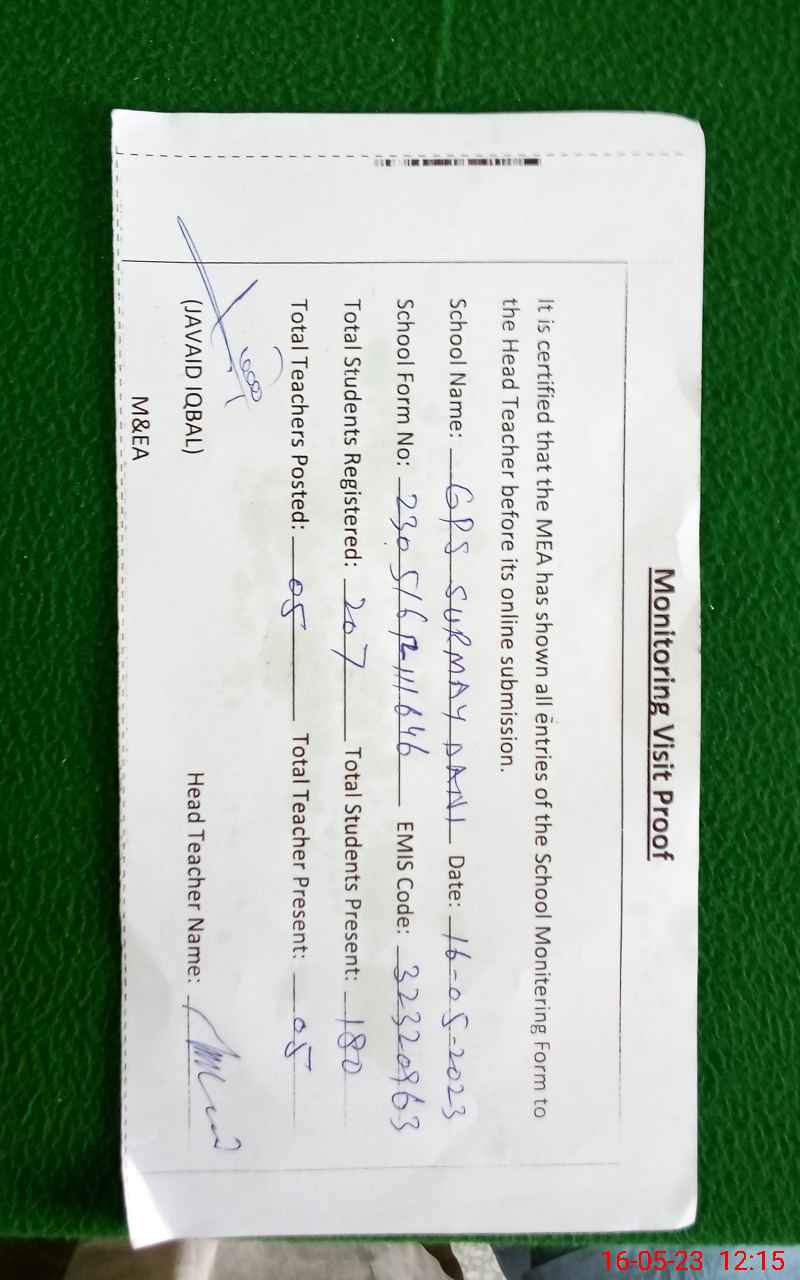 Monitoring Visit Proof
It is certified that the MEA has shown all entries of the School Monitering Form to
the Head Teacher before its online submission.
School Name: GPS SURMAY DANI Date: 16-05-2023
School Form No: EMIS Code: 32320963
Total Students Registered: 207 Total Students Present: 180
Total Teachers Posted: 05 Total Teacher Present: 05
(JAVAID IQBAL) Head Teacher Name:
M&EA
16-05-23 12:15